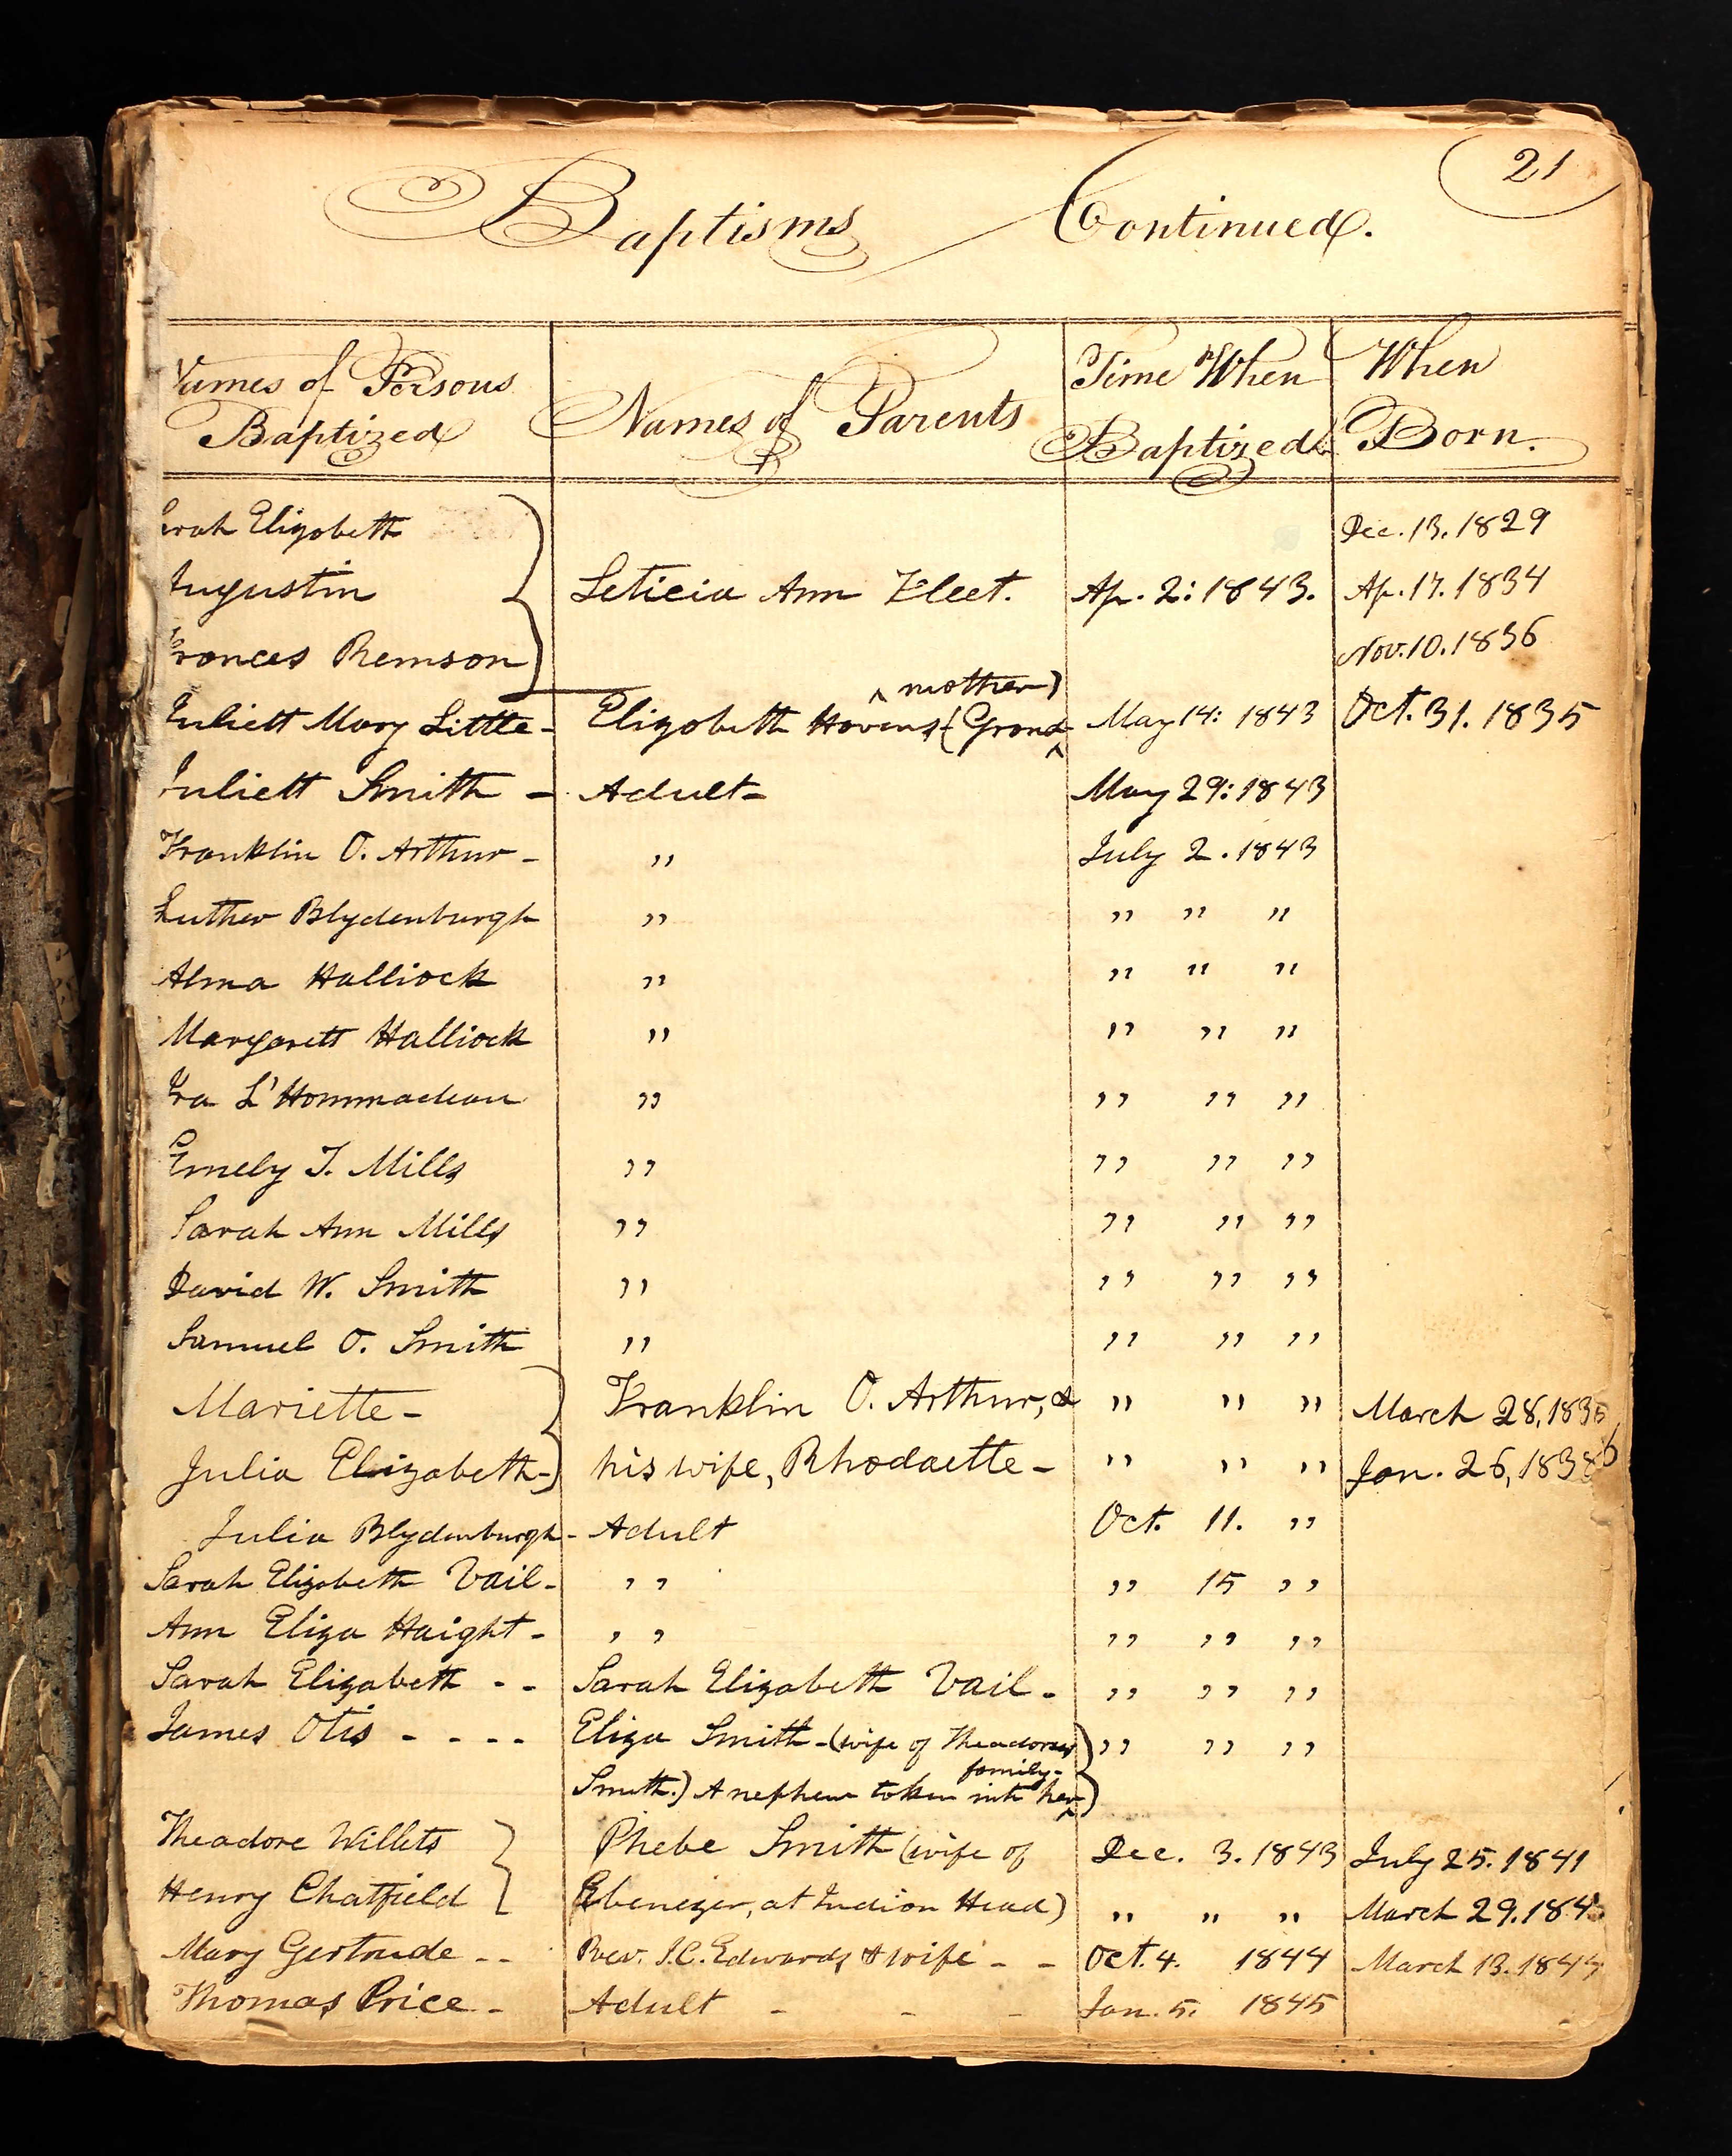 21
Baptisms Continued.
Names of Persons Baptized
Names of Parents
Time When Baptized.
When Born.
Sarah Elizabeth Dec. 13. 1829
Augustin Leticia Ann Fleet. Ap. 2: 1843. Ap. 17. 1834
Frances Remson Nov. 10. 1836
mother)
Juliett Mary Little - Elizabeth Havens (Grand May 14: 1843 Oct. 31. 1835
Juliett Smith - Adult - May 29: 1843
Franklin O. Arthur - " July 2. 1843
Luther Blydenburgh " " " "
Alma Halliock " " " "
Margarett Halliock " " " "
Ira L'Hommadeau " " " "
Emely T. Mills " " " "
Sarah Ann Mills " " " "
David W. Smith " " " "
Samuel O. Smith " " " "
Mariette - Franklin O. Arthur, & " " " March 28, 1835
Julia Elizabeth - his wife, Rhodaette - " " " Jan. 26, 1838
Julia Blydenburgh - Adult Oct. 11. "
Sarah Elizabeth Vail - " " 15 "
Ann Eliza Haight - " " " "
Sarah Elizabeth - - Sarah Elizabeth Vail - " " "
James Otis - - - - Eliza Smith - (wife of Theadorus " " "
family -
Smith.) A nephew taken into her)
Theadore Willets Phebe Smith (wife of Dec. 3. 1843 July 25. 1841
Henry Chatfield Ebenezer, at Indian Head) " " " March 29. 184
Mary Gertrude - - Rev. J. C. Edwards & wife - - Oct. 4. 1844 March 13. 1844
Thomas Price - Adult - - - Jan. 5. 1845